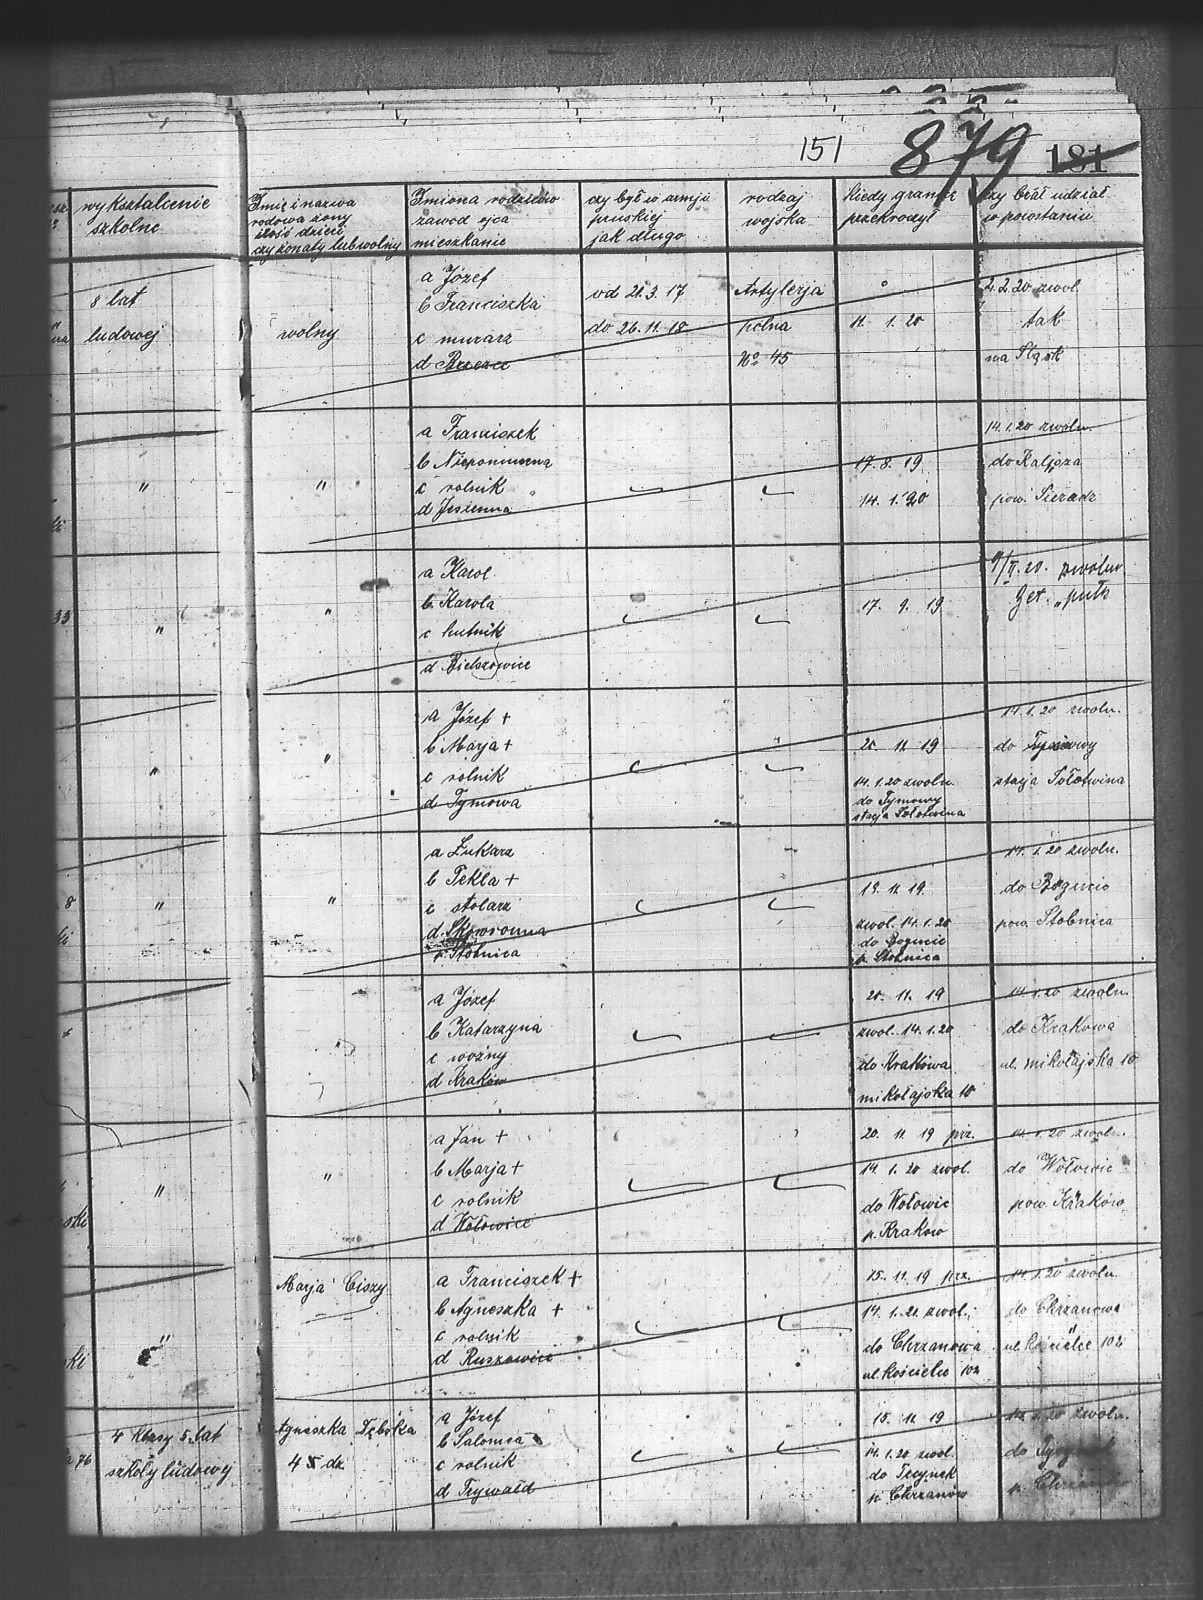 151 879 181
wykształcenie
szkolne
Imię i nazwa
rodowa żony
ilość dzieci
czy żonaty lub wolny
Imiona rodziców
zawód ojca
mieszkanie
czy był w armji
pruskiej
jak długo
rodzaj
wojska
Kiedy granicę
przekroczył
czy brał udział
w powstaniu
8 lat
ludowej
wolny
a Józef
b Franciszka
c murarz
d Brzezce
od 21.3.17
do 26.11.18
Artylerja
polna
No 45
11. 1. 20
2.2.20 zwol.
tak
na Śląsk
"
"
a Franciszek
b Niepomucena
c rolnik
d Jesienna
17. 8. 19
14. 1. 20
14.1.20 zwoln.
do Kalisza
pow. Sieradz
33
"
"
a Karol
b Karola
c hutnik
d Bielszowice
17. 9. 19
20. zwoln
"
"
a Józef +
b Marja +
c rolnik
d Tymowa
20 11 19
14.1.20 zwoln.
do Tymowy
stacja Sołotwina
14.1.20 zwoln.
do Tymowy
stacja Sołotwina
8
"
"
a Łukasz
b Tekla +
c stolarz
d Skowronna
p. Stobnica
13. 11 19.
zwol. 14.1.20
do Bogucic
p. Stobnica
14. 1. 20 zwoln.
do Bogucic
pow. Stobnica
"
a Józef
b Katarzyna
c woźny
d Kraków
20. 11. 19
zwol. 14.1.20
do Krakowa
mikołajska 10
14.1.20 zwoln.
do Krakowa
ul. mikołajska 10
"
"
a Jan +
b Marja +
c rolnik
d Wołowice
20. 11 19 prz.
14. 1. 20 zwol.
do Wołowic
p. Kraków
14.1.20 zwol.
do Wołowic
pow. Kraków
"
Marja Ciszy
a Franciszek +
b Agnieszka +
c rolnik
d Ruszowice
15. 11. 19 prz.
14. 1. 20 zwol.
do Chrzanowa
ul. Kościelec 102
14.1.20 zwoln.
do Chrzanowa
ul. Kościelec 102
76
4 klasy 5 lat
szkoły ludowej
Agnieszka Dębska
a Józef
b Salomea
c rolnik
d Frywałd
15. 11 19
14.1.20 zwol.
do Tęczynek
p. Chrzanów
14.1.20 zwoln.
do
p. Chrzanów